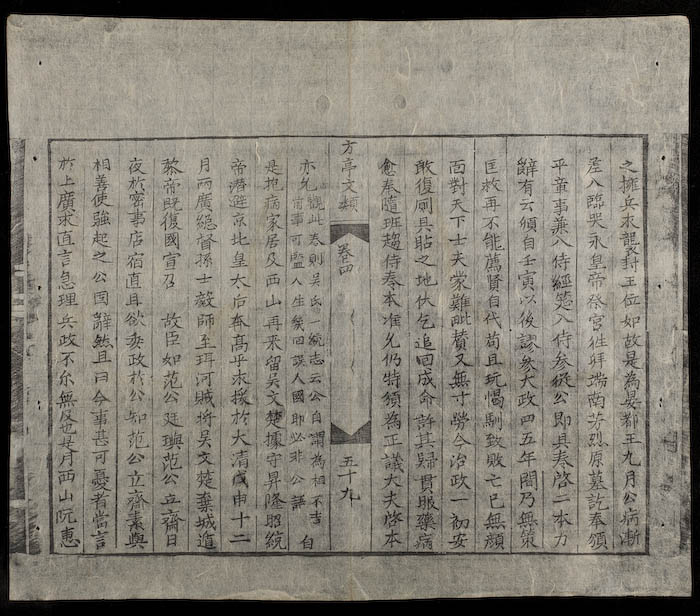 之擁兵求襲封王位如故是為晏都王九月公病漸
差入臨哭永皇帝祭宮徃拜端南芳烈原墓訖奉頒
平章事兼入侍經筵入侍参從公即具奏啓二本力
辭有云頒自壬寅以後認參大政四五年間乃無策
匡救再不能薦賢自代苟且玩愒馴致敗亡已無顔
面對天下士夫蒙難毗賛又無寸勞今治政一初安
敢復厠具贍之地伏乞追回成命許其歸貫服藥病
愈奉隨班趨侍奉本准允仍特頒為正議大夫啓本
方亭文類 卷四 五十九
亦允 觀此卷則吳氏一統志云公自謂為相不吉
前事可監人生幾回誤人國即必非公語 自
是抱病家居及西山再來留吳文楚據守昇隆昭統
帝潛避京北皇太后奔高平求援於大清戊申十二
月兩廣緫督孫士毅師至珥河賊將吳文楚棄城遁
黎帝既復國宣召 故臣如范公廷璵范公立齋日
夜於密事店宿直且欲委政於公知范公立齋素與
相善使強起之公固辭然且曰今事甚可憂者當言
於上廣求直言急理兵政不尓無及也是月西山阮惠